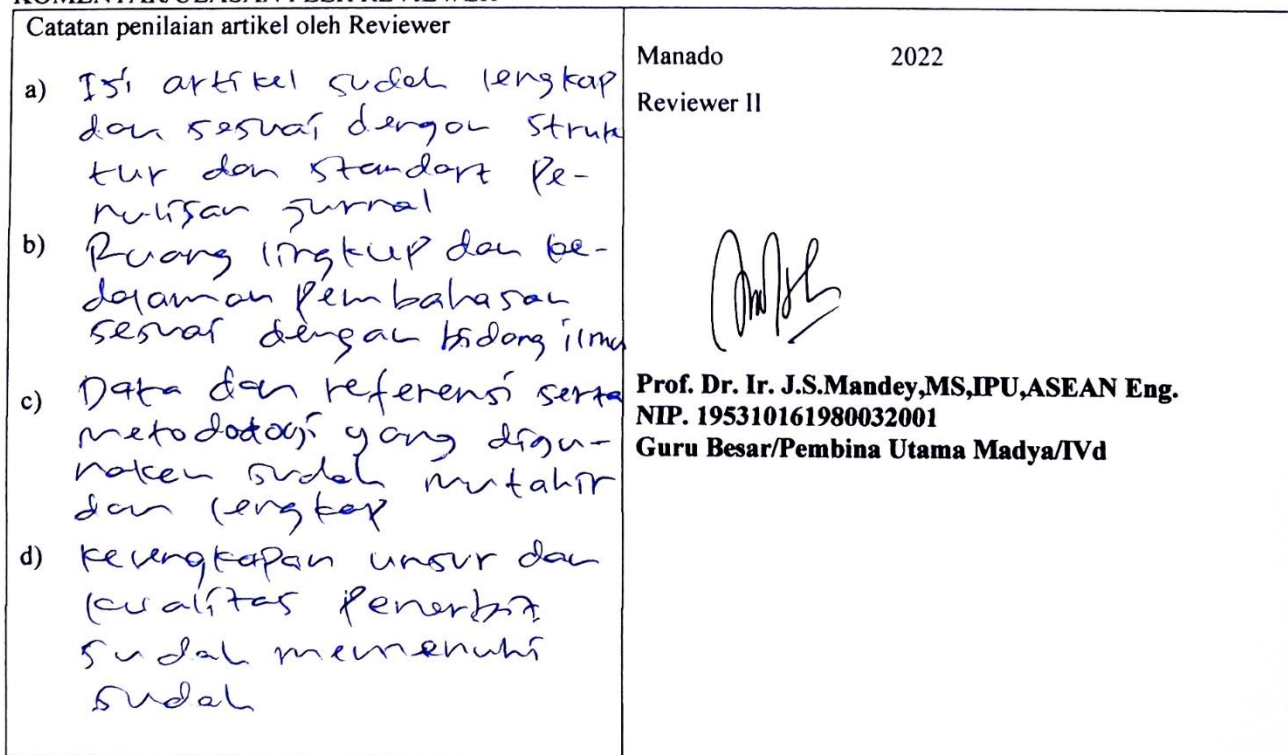 Catatan penilaian artikel oleh Reviewer
a) Isi artikel sudah lengkap
dan sesuai dengan struk
tur dan standart Pe-
nulisan Jurnal
b) Ruang lingkup dan ke-
dalaman Pembahasan
sesuai dengan bidang ilmu
c) Data dan referensi serta
metodologi yang digu-
nakan sudah mutahir
dan lengkap
d) Kelengkapan unsur dan
kualitas Penerbit
sudah memenuhi
sudah
Manado 2022
Reviewer II
Prof. Dr. Ir. J.S.Mandey,MS,IPU,ASEAN Eng.
NIP. 195310161980032001
Guru Besar/Pembina Utama Madya/IVd